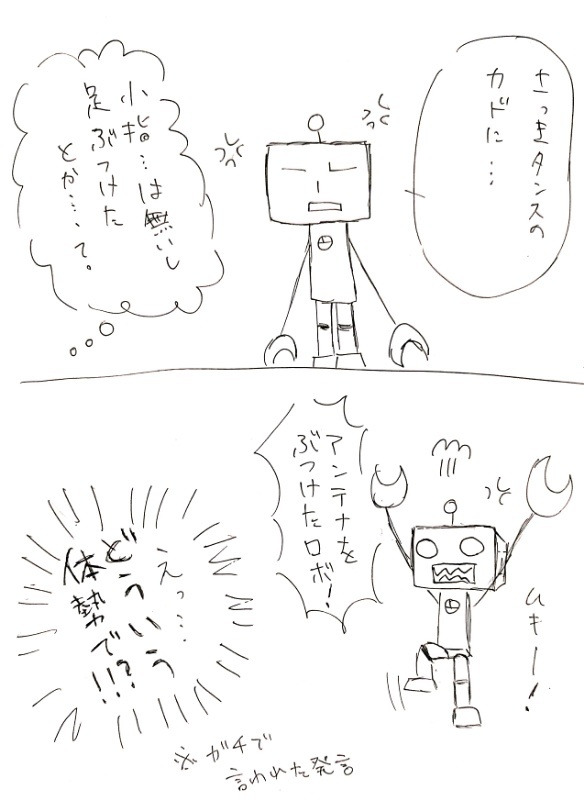 さっきタンスの
カドに…
小指…は無いし
足ぶつけた
とか…、て。
アンテナを
ぶつけたロボ!
ムキー!
えっ…
どういう
体勢で!!?
※ガチで
言われた発言